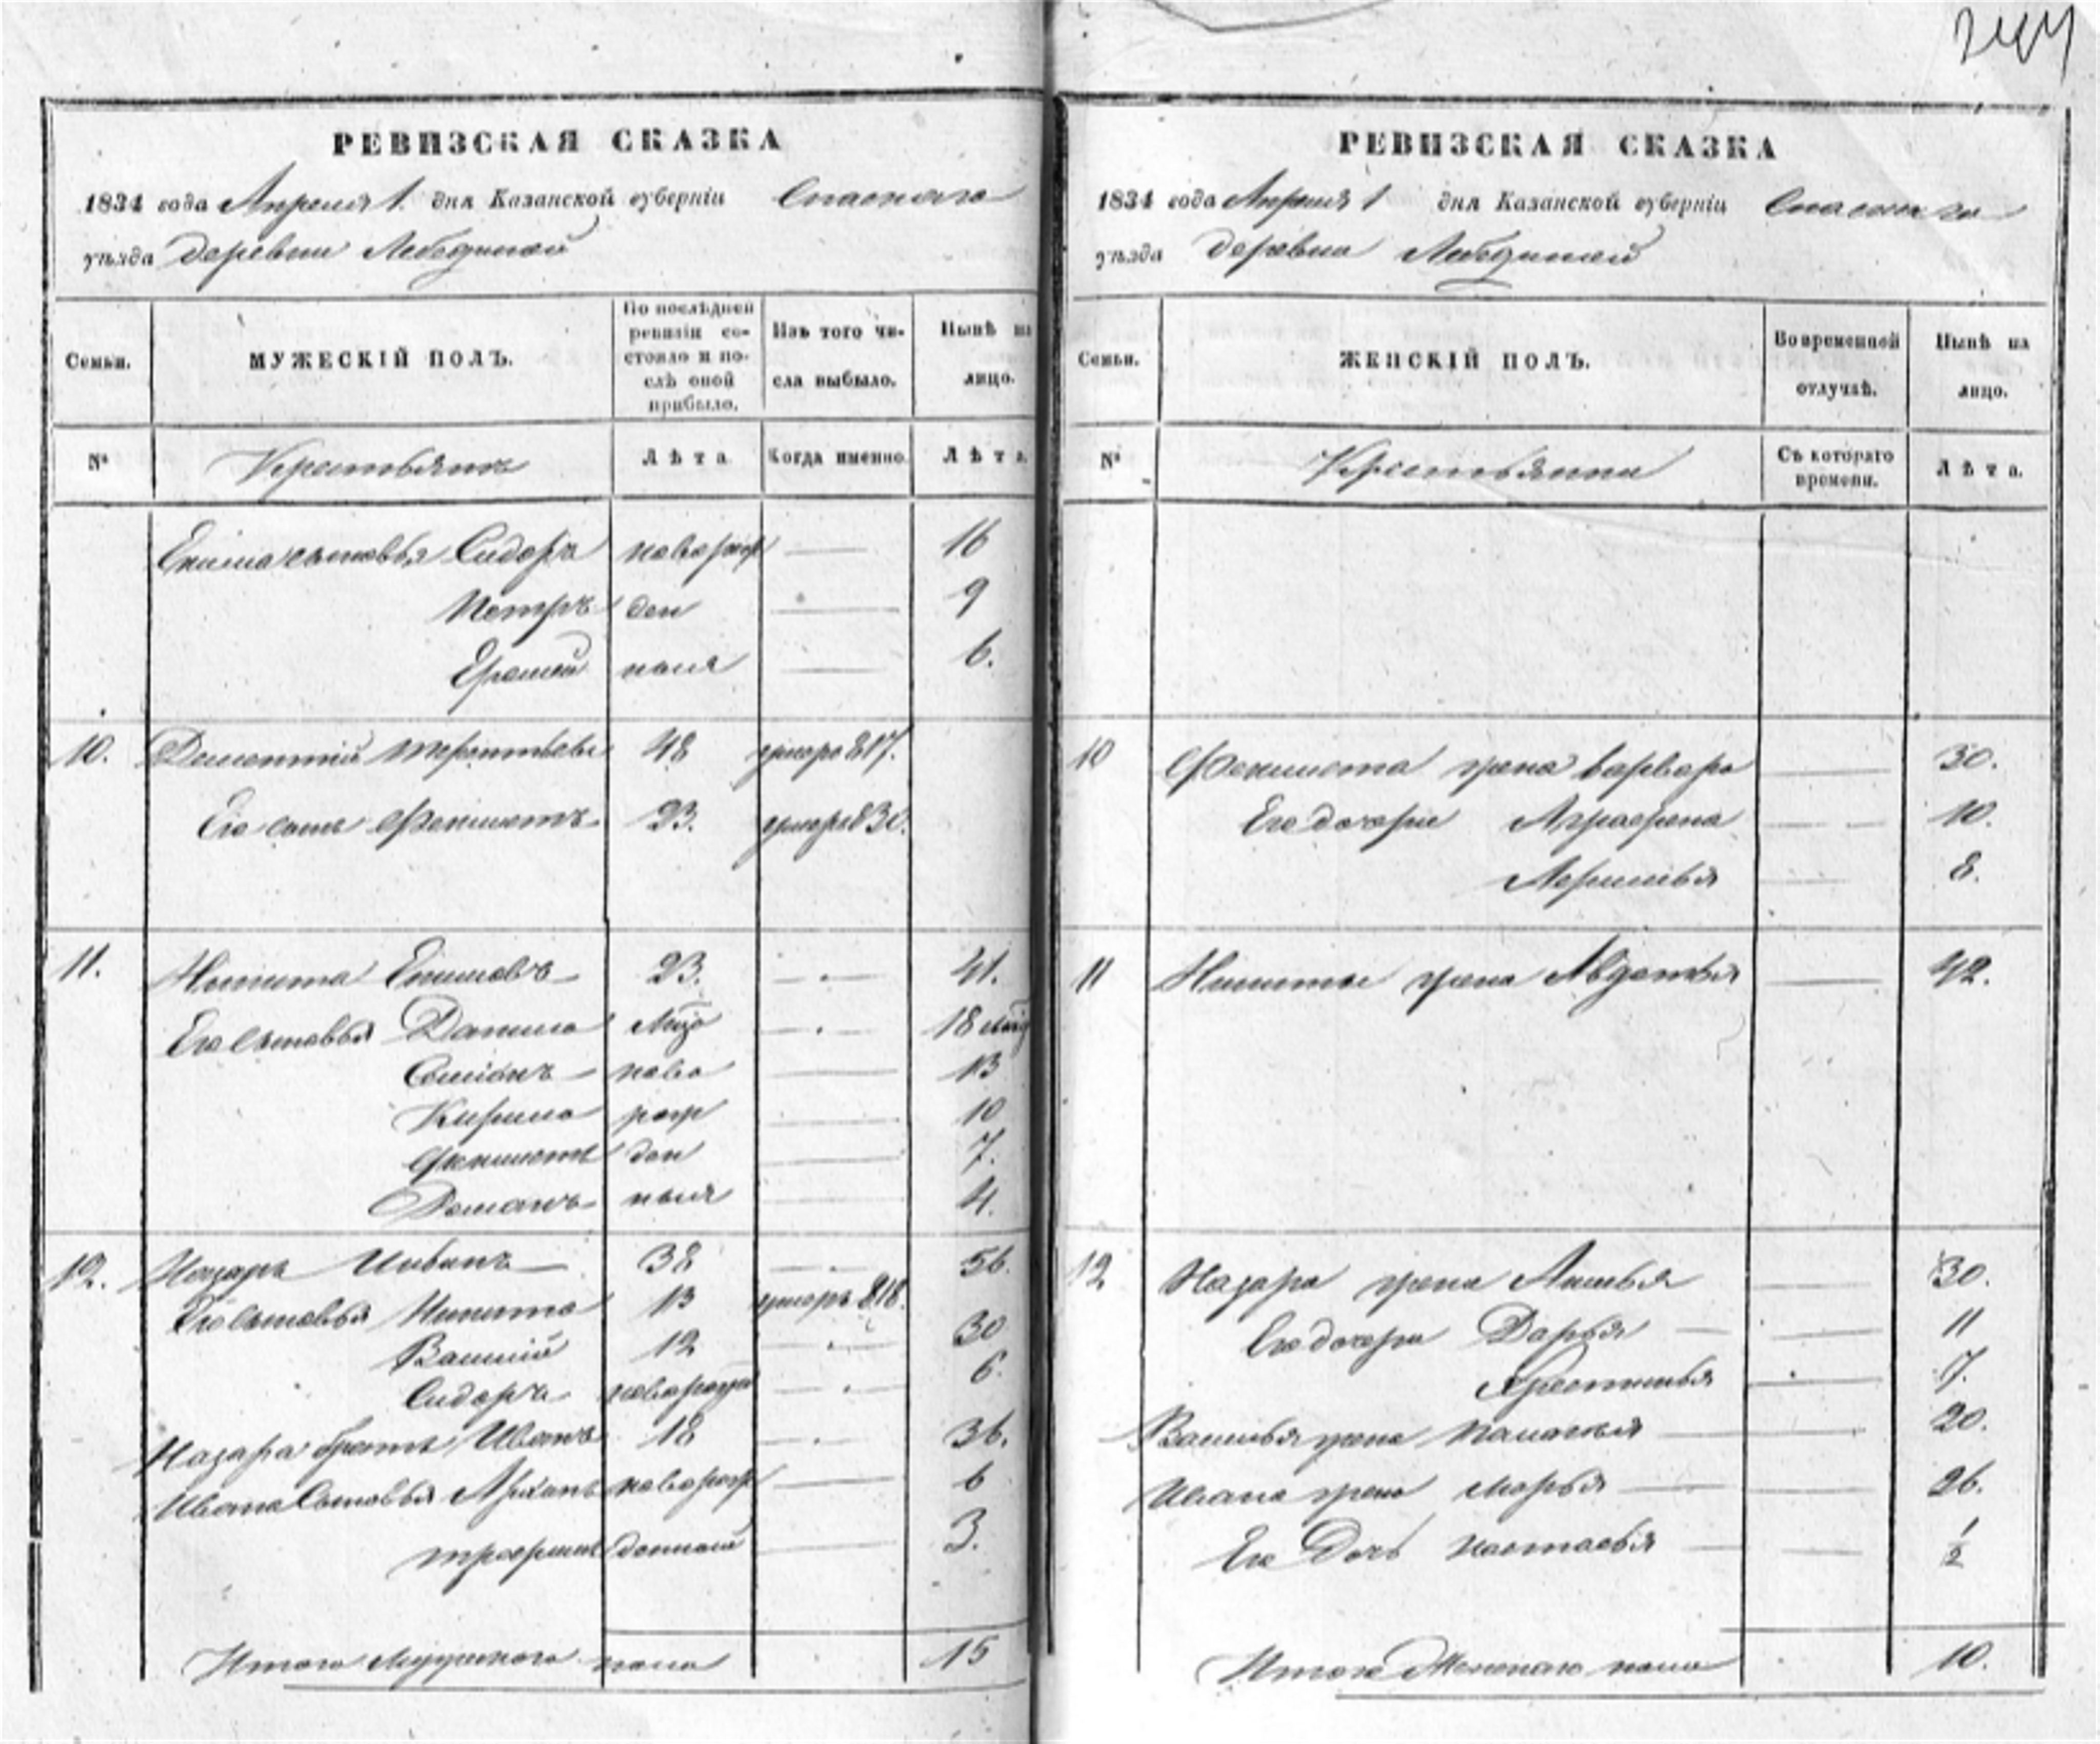 244
РЕВИЗСКАЯ СКАЗКА
1834 года Апреля 1. дня Казанской губерніи Спаскаго
уѣзда деревни Лебединой
Семьи.
МУЖЕСКІЙ ПОЛЪ.
По послѣдней ревизіи состояло и послѣ оной прибыло.
Изъ того числа выбыло.
Нынѣ на лицо.
№
Крестьянъ
Лѣта
Когда именно.
Лѣта
Екима сыновья Сидоръ новорож 16
Петръ ден 9
Еремей ныя 6.
10. Дементій Терентьевъ 48 умеръ 817.
Его сынъ Феклистъ 23. умеръ 830.
11. Никита Екимовъ 23. 41.
Его сыновья Данило 18
Семіонъ ново 13
Кирило рож 10
Феклистъ ден 7.
Романъ ныя 4.
12. Назаръ Ивановъ 38 56.
Его сыновья Никита 13 умеръ 818.
Василій 12 30
Сидоръ новорожд 6.
Назара братъ Иванъ 18 36.
Ивана сыновья новорож 6
Трофимъ денной 3.
Итого Мужескаго пола 15
РЕВИЗСКАЯ СКАЗКА
1834 года Апреля 1 дня Казанской губерніи Спаскаго
уѣзда деревни Лебединой
Семьи.
ЖЕНСКІЙ ПОЛЪ.
Во временной отлучкѣ.
Нынѣ на лицо.
№
Крестьянки
Съ котораго времени.
Лѣта.
10 Феклиста жена Варвара 30.
Его дочери Аграфена 10.
8.
11 Никиты жена Авдотья 42.
12 Назара жена 30.
Его дочери Дарья 11
7.
Василья жена Палагья 20.
Ивана жена Марья 26.
Его Дочь Настасья 1/2
Итого Женскаго пола 10.